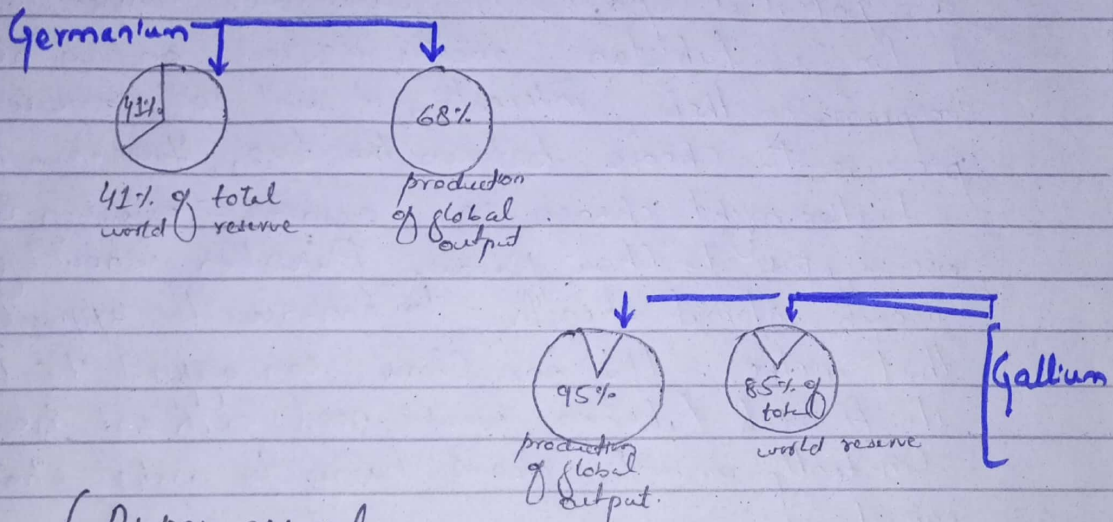 Germanium
41%
68%
41% of total
world reserve
production
of global
output
95%
85% of
total
world reserve
Gallium
production
of global
output.